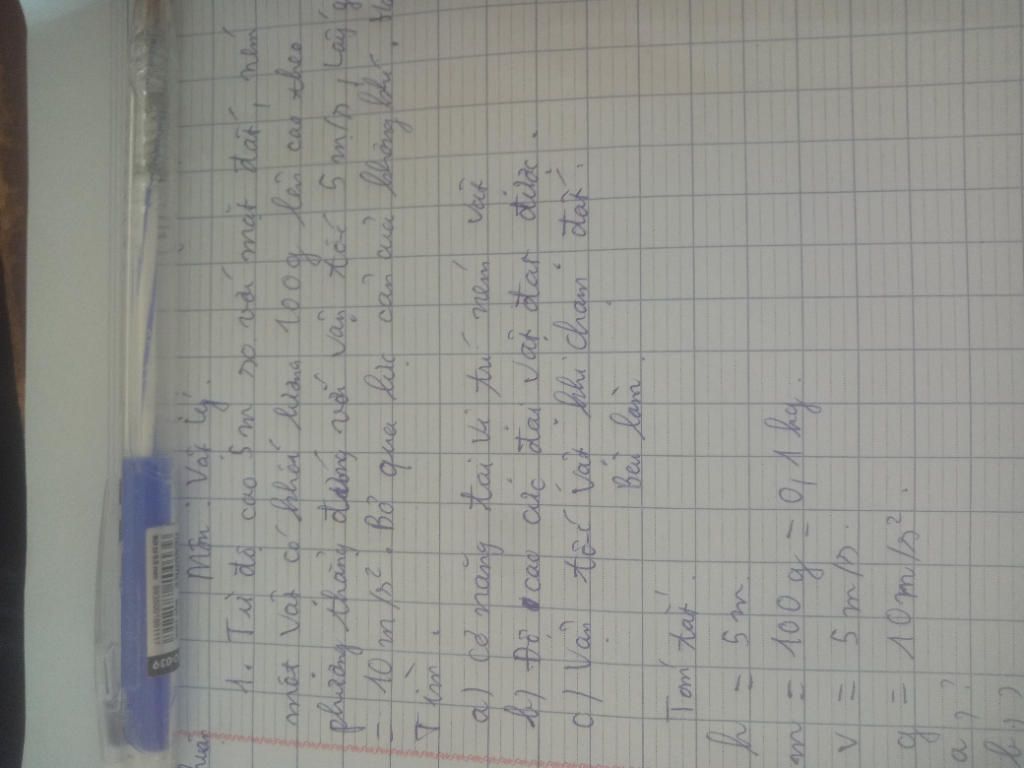 Môn: Vật lý.
1. Từ độ cao 5m so với mặt đất, ném
một vật có khối lượng 100g lên cao theo
phương thẳng đứng với vận tốc 5m/s, Lấy g
= 10m/s². Bỏ qua lực cản của không khí.
Tìm.
a) Cơ năng tại vị trí ném vật
b) Độ cao cực đại vật đạt được.
c) Vận tốc vật khi chạm đất.
Bài làm
Tóm tắt
h = 5m
m = 100g = 0,1kg.
v = 5m/s.
g = 10m/s².
a)?
b)?